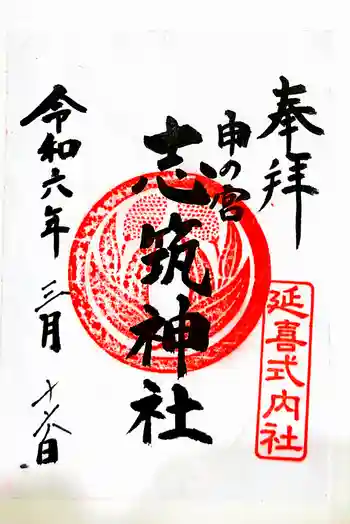 奉拝
延喜式内社
申の宮
志筑神社
令和六年 三月 十八日